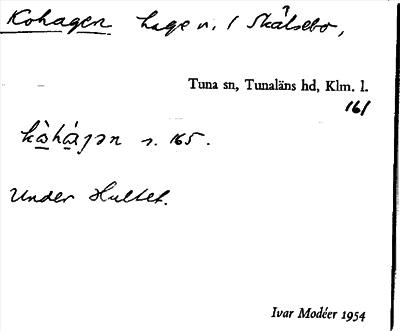 Kohagen hage n. / Skålsebo,
Tuna sn, Tunaläns hd, Klm. l.
161
s. 165.
Under Hultet.
Ivar Modéer 1954